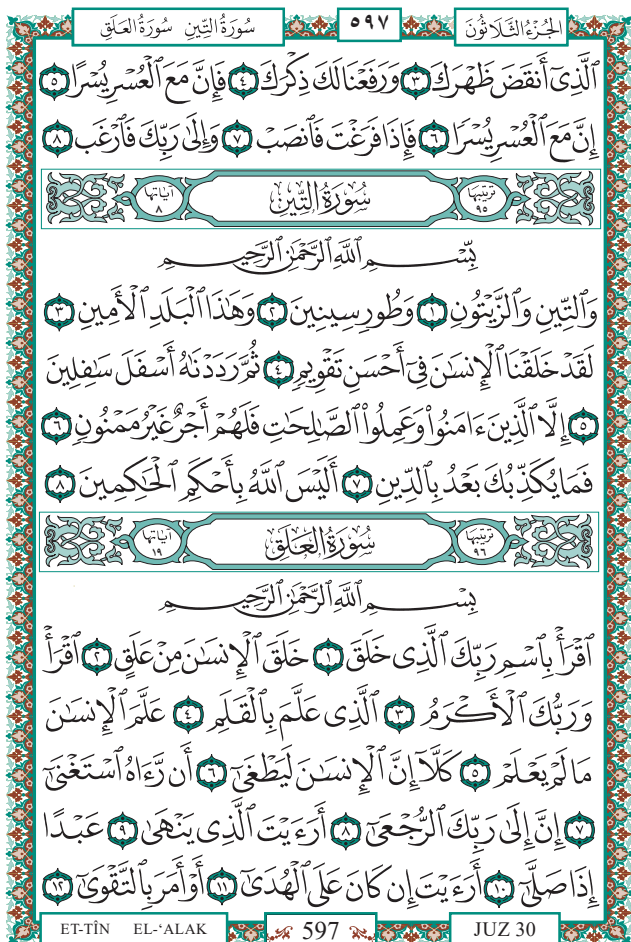 سُورَةُ التِّينِ سُورَةُ العَلَقِ ٥٩٧ الجُزْءُ الثَّلَاثُونَ
ٱلَّذِىٓ أَنقَضَ ظَهْرَكَ ٣ وَرَفَعْنَا لَكَ ذِكْرَكَ ٤ فَإِنَّ مَعَ ٱلْعُسْرِ يُسْرًا ٥
إِنَّ مَعَ ٱلْعُسْرِ يُسْرًا ٦ فَإِذَا فَرَغْتَ فَٱنصَبْ ٧ وَإِلَىٰ رَبِّكَ فَٱرْغَب ٨
ترتيبها ٩٥ سُورَةُ التِّينِ آياتها ٨
بِّسْمِ ٱللَّهِ ٱلرَّحْمَٰنِ ٱلرَّحِيمِ
وَٱلتِّينِ وَٱلزَّيْتُونِ ١ وَطُورِ سِينِينَ ٢ وَهَٰذَا ٱلْبَلَدِ ٱلْأَمِينِ ٣
لَقَدْ خَلَقْنَا ٱلْإِنسَٰنَ فِىٓ أَحْسَنِ تَقْوِيمٍ ٤ ثُمَّ رَدَدْنَٰهُ أَسْفَلَ سَٰفِلِينَ
٥ إِلَّا ٱلَّذِينَ ءَامَنُوا۟ وَعَمِلُوا۟ ٱلصَّٰلِحَٰتِ فَلَهُمْ أَجْرٌ غَيْرُ مَمْنُونٍ ٦
فَمَا يُكَذِّبُكَ بَعْدُ بِٱلدِّينِ ٧ أَلَيْسَ ٱللَّهُ بِأَحْكَمِ ٱلْحَٰكِمِينَ ٨
ترتيبها ٩٦ سُورَةُ العَلَقِ آياتها ١٩
بِسْمِ ٱللَّهِ ٱلرَّحْمَٰنِ ٱلرَّحِيمِ
ٱقْرَأْ بِٱسْمِ رَبِّكَ ٱلَّذِى خَلَقَ ١ خَلَقَ ٱلْإِنسَٰنَ مِنْ عَلَقٍ ٢ ٱقْرَأْ
وَرَبُّكَ ٱلْأَكْرَمُ ٣ ٱلَّذِى عَلَّمَ بِٱلْقَلَمِ ٤ عَلَّمَ ٱلْإِنسَٰنَ
مَا لَمْ يَعْلَمْ ٥ كَلَّآ إِنَّ ٱلْإِنسَٰنَ لَيَطْغَىٰٓ ٦ أَن رَّءَاهُ ٱسْتَغْنَىٰٓ
٧ إِنَّ إِلَىٰ رَبِّكَ ٱلرُّجْعَىٰٓ ٨ أَرَءَيْتَ ٱلَّذِى يَنْهَىٰ ٩ عَبْدًا
إِذَا صَلَّىٰٓ ١٠ أَرَءَيْتَ إِن كَانَ عَلَى ٱلْهُدَىٰٓ ١١ أَوْ أَمَرَ بِٱلتَّقْوَىٰٓ ١٢
ET-TÎN EL-‘ALAK 597 JUZ 30